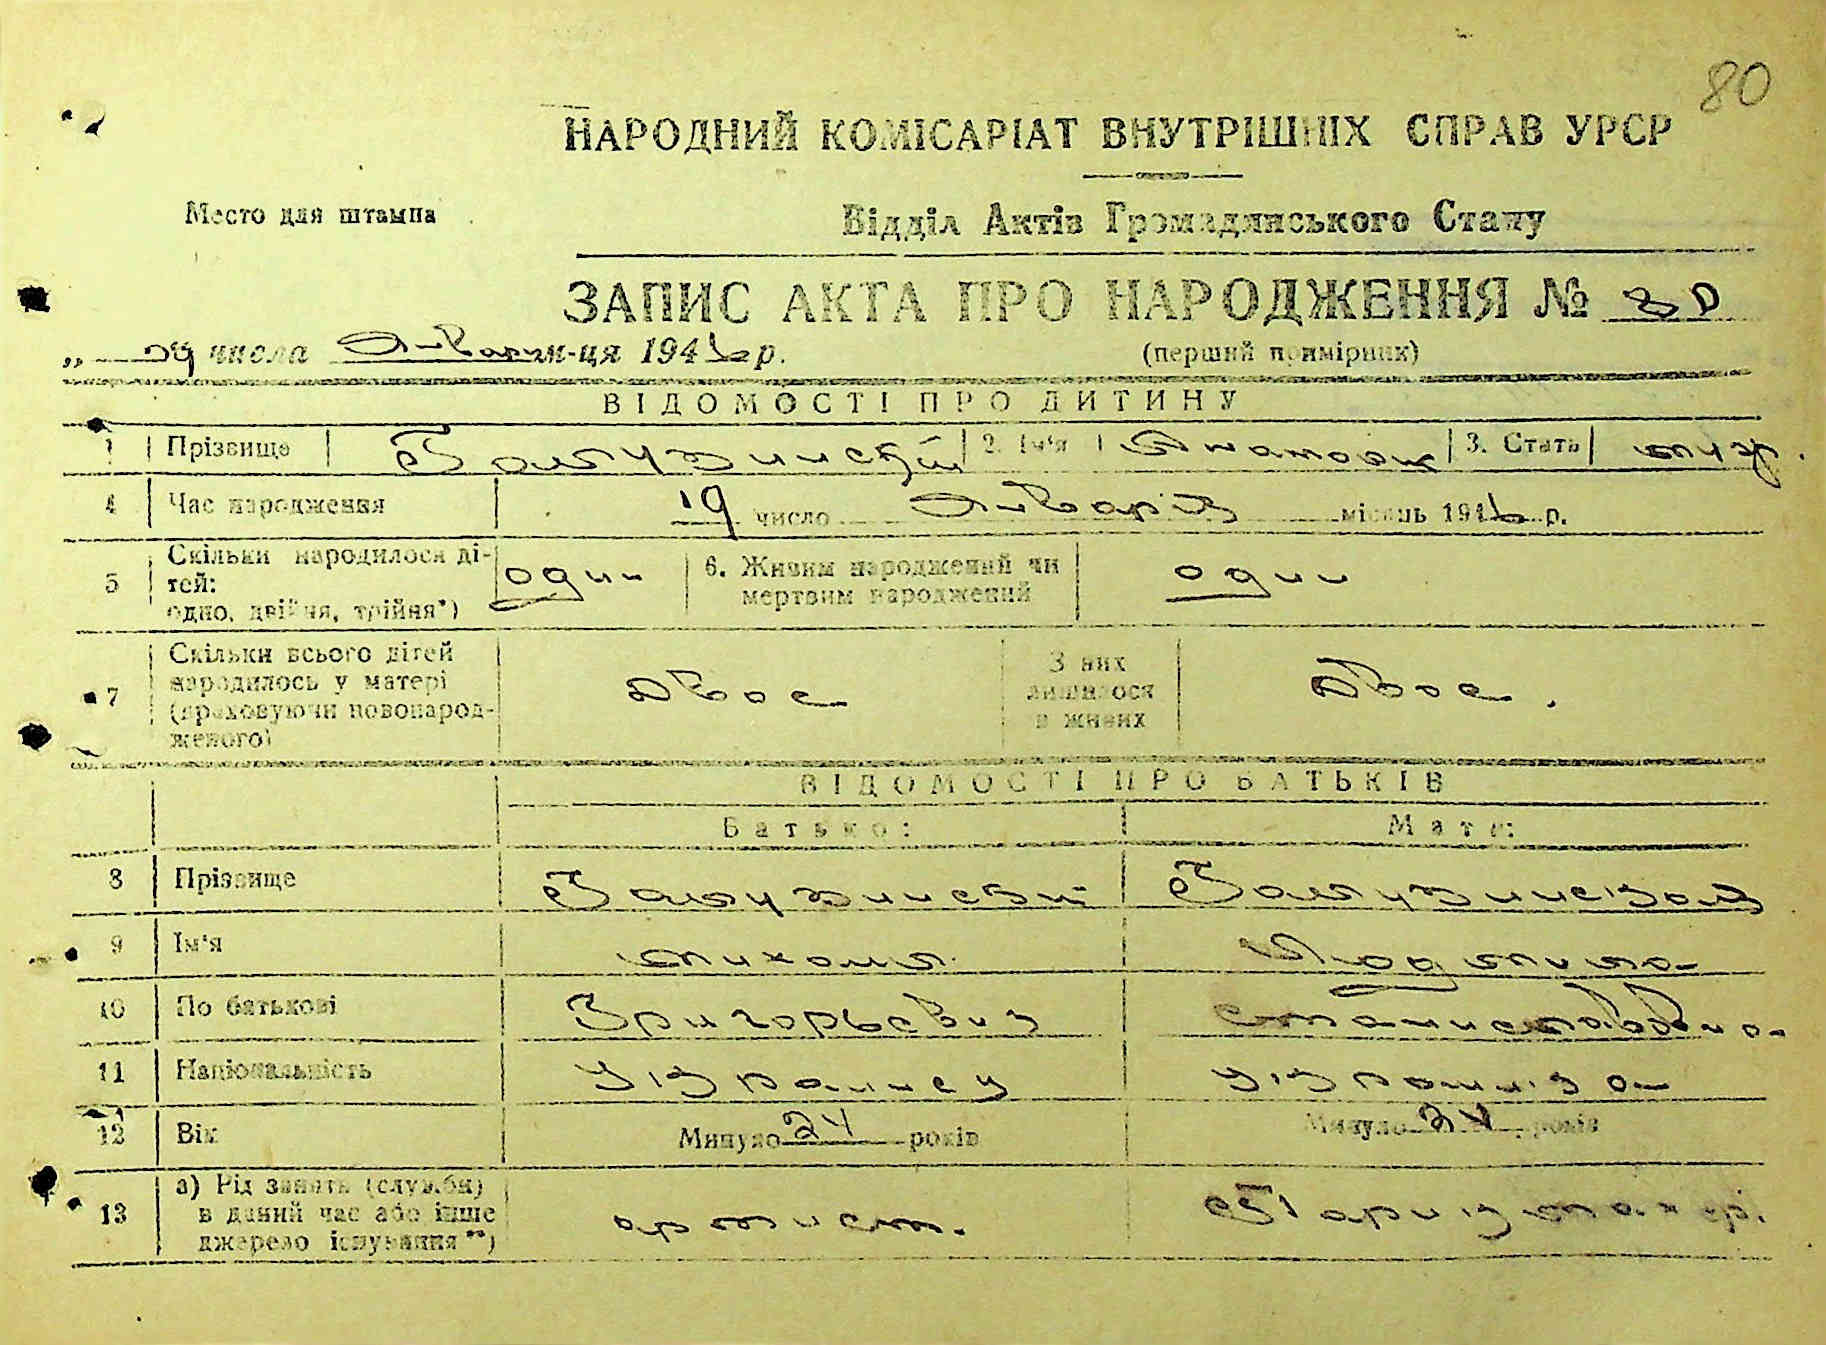 80
НАРОДНИЙ КОМІСАРІАТ ВНУТРІШНІХ СПРАВ УРСР
Место для штампа
Відділ Актів Громадянського Стану
ЗАПИС АКТА ПРО НАРОДЖЕННЯ № 80
„ числа м-ця 194 р.
(перший примірник)
ВІДОМОСТІ ПРО ДИТИНУ
1 Прізвище 2. Ім'я 3. Стать муж.
4 Час народження 19 число місяць 194 р.
5 Скільки народилося ді-
тей:
одно, двійня, трійня*) один 6. Живим народжений чи
мертвим народжений один
7 Скільки всього дітей
народилось у матері
(враховуючи новонарод-
женого) двое З них
лишилося
в живих двое.
ВІДОМОСТІ ПРО БАТЬКІВ
Батько: Мати:
8 Прізвище
9 Ім'я Людмила
10 По батькові Григорьевич Станиславовна
11 Національність Украинец Украинка
12 Вік Минуло 24 років Минуло років
13 а) Рід занять (служби)
в даний час або інше
джерело існування**) артист. Парикмахер.